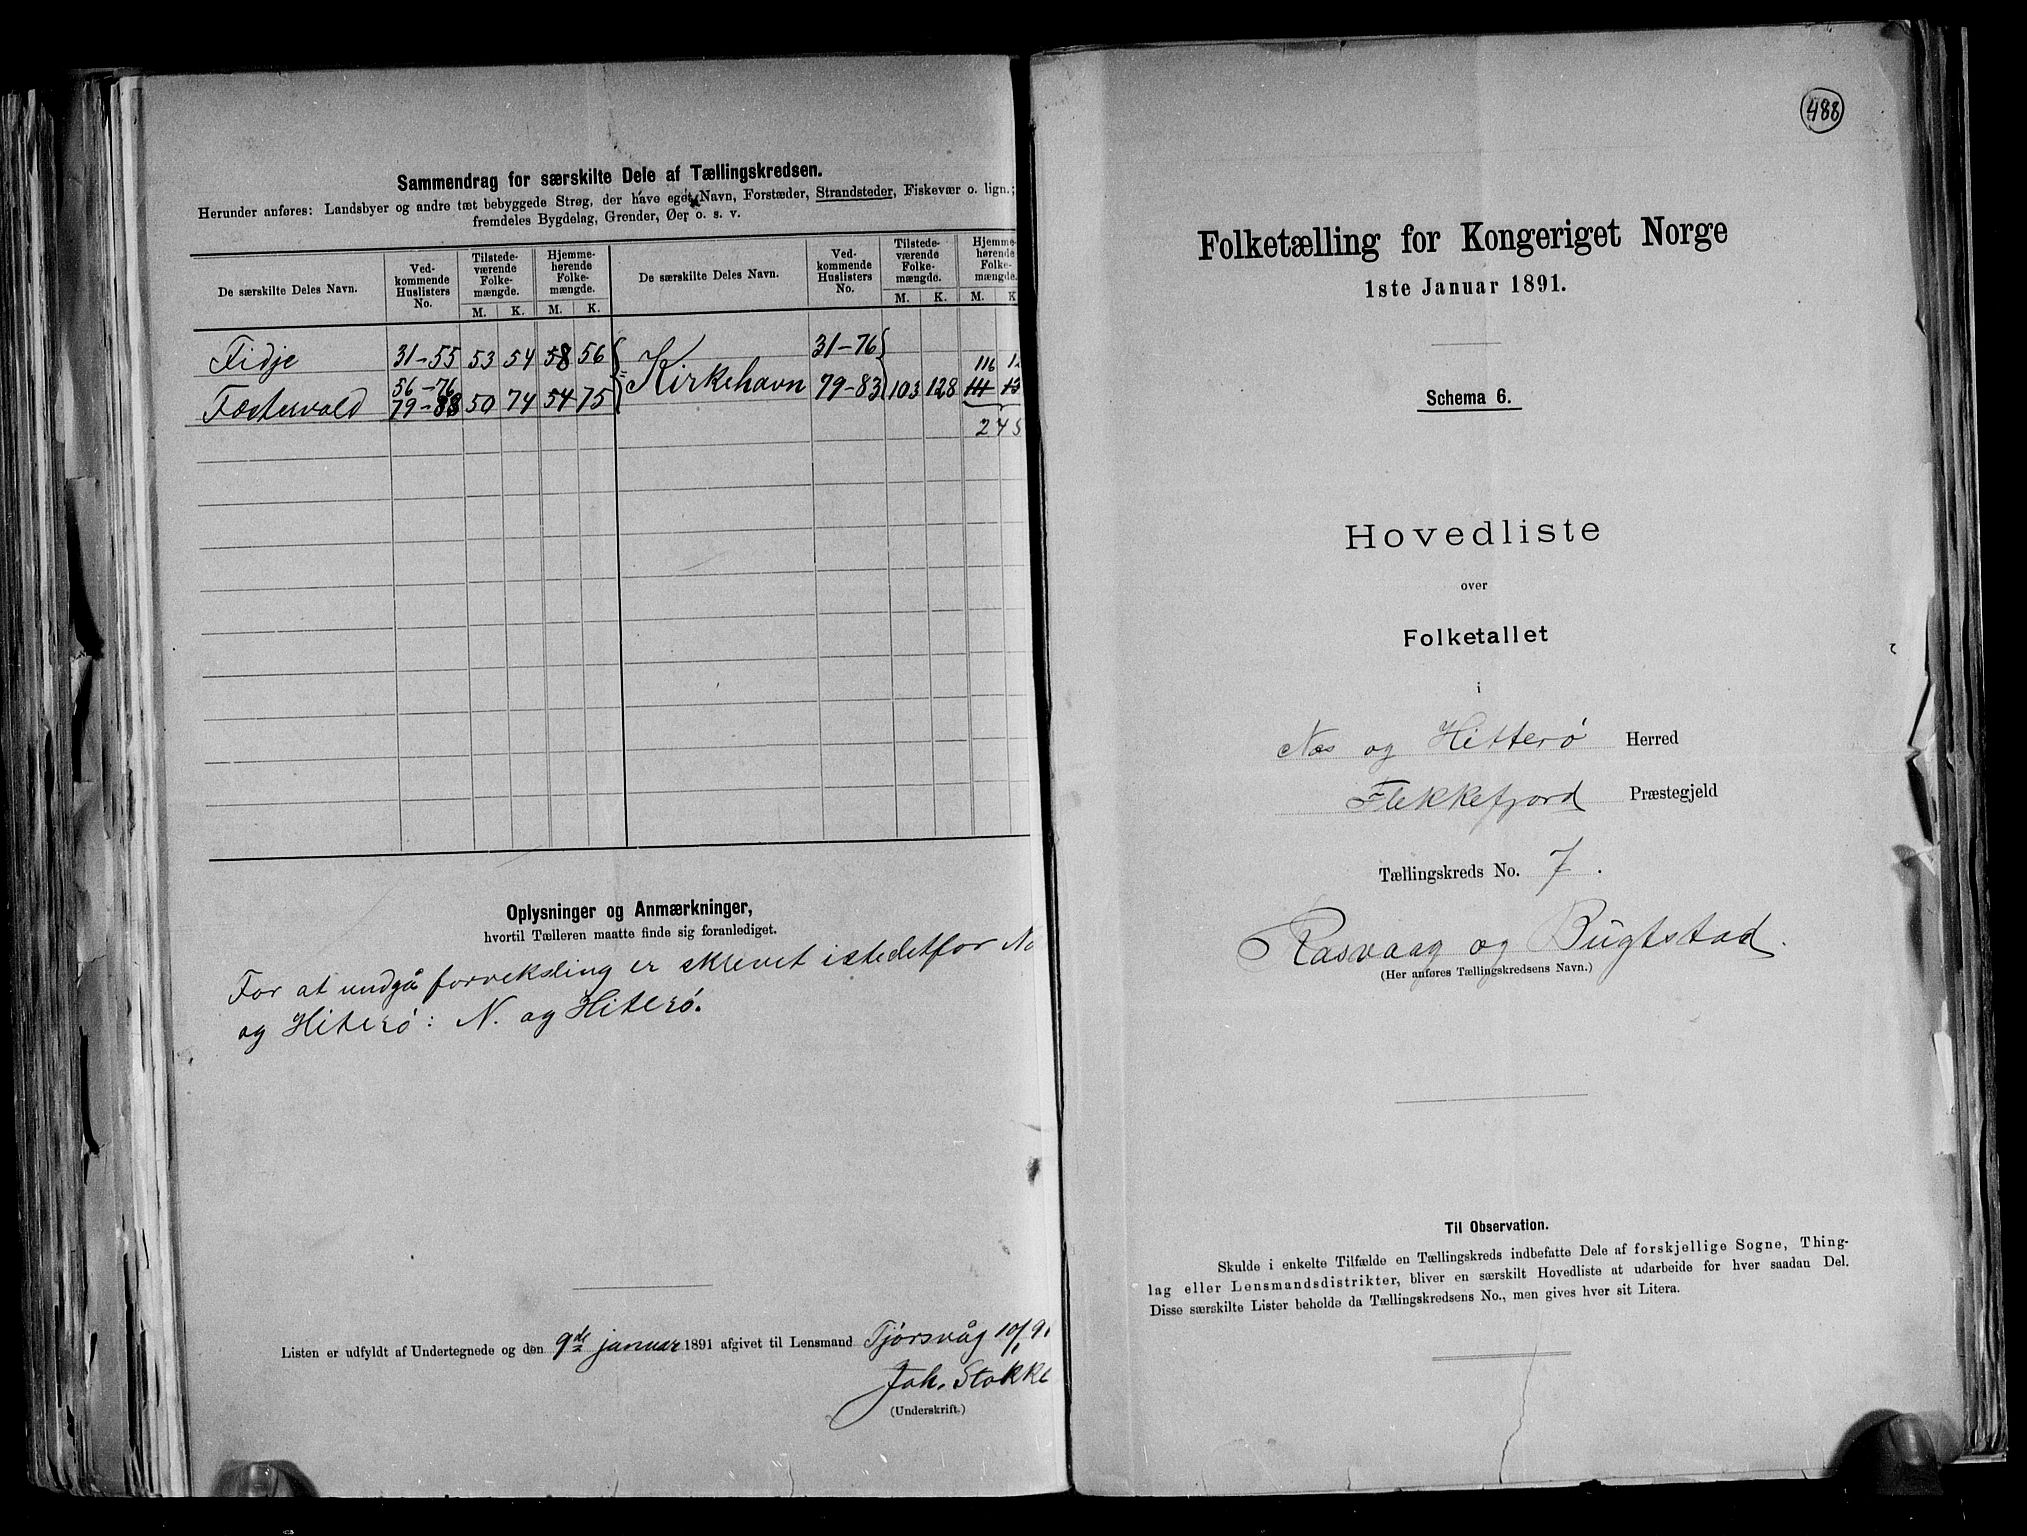 Sammendrag for særskilte Dele af Tællingskredsen.
Herunder anføres: Landsbyer og andre tæt bebyggede Strøg, der have eget Navn, Forstæder, Strandsteder, Fiskevær o. lign.;
fremdeles Bygdelag, Grender, Øer o. s. v.
De særskilte Deles Navn.
Ved-
kommende
Huslisters
No.
Tilstede-
værende
Folke-
mængde.
Hjemme-
hørende
Folke-
mængde.
De særskilte Deles Navn.
Ved-
kommende
Huslisters
No.
Tilstede-
værende
Folke-
mængde.
Hjemme-
hørende
Folke-
mængde.
M. K. M. K. M. K. M. K
Fidje 31-55 53 54 58 56 31-76 116
56-76 79-88 50 74 54 75 Kirkehavn 79-83 103 128 111
245
Oplysninger og Anmærkninger,
hvortil Tælleren maatte finde sig foranlediget.
For at undgå forveksling er skrevet istedetfor
og Hiterø: N. og Hiterø.
Listen er udfyldt af Undertegnede og den 9de januar 1891 afgivet til Lensmand Tjørsvåg 10/1 91
Joh. Stokke
(Underskrift.)
488
Folketælling for Kongeriget Norge
1ste Januar 1891.
Schema 6.
Hovedliste
over
Folketallet
i
Næs og Hitterø Herred
Flekkefjord Præstegjeld
Tællingskreds No. 7.
Rasvaag og Bugtstad.
(Her anføres Tællingskredsens Navn.)
Til Observation.
Skulde i enkelte Tilfælde en Tællingskreds indbefatte Dele af forskjellige Sogne, Thing-
lag eller Lensmandsdistrikter, bliver en særskilt Hovedliste at udarbeide for hver saadan Del.
Disse særskilte Lister beholde da Tællingskredsens No., men gives hver sit Litera.